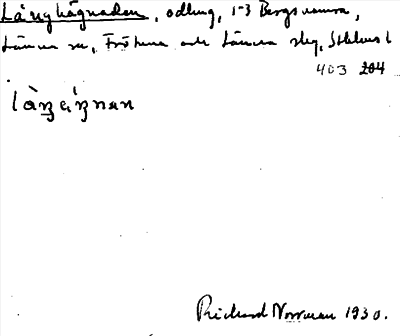 Långhägnaden, odling, 1-3 Bergsvamra,
Länna sn, Frötuna och Länna slg, Sthlms l
403 204
Richard Norrman 1930.